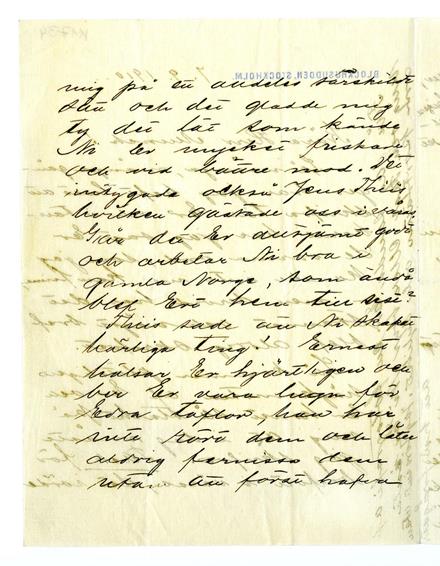 mig på ett alldeles särskildt
sätt och det gladde mig
ty det lät som kände
Ni Er mycket friskare
och vid bättre mod. Det
intygade också Jens Thiis
hvilken gästade oss i
Går det Er alltjämt godt
och arbetar Ni bra i
gamla Norge, som ändå
blef Ert hem till sist?
Thiis sade att Ni skapat
härliga ting! Ernest
hälsar Er hjärtligen och
ber Er vara lugn för
Edra taflor, han har
inte rört dem och låter
aldrig fernissa dem
utan att först hafva
BLOCKHUSUDDEN, STOCKHOLM.